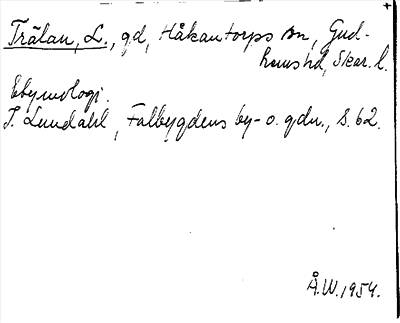 Trälan, L., gd, Håkantorps sn, Gud-
hems hd, Skar. l.
Etymologi.
I. Lundahl, Falbygdens by- o. gdn., s. 62.
Å.W. 1954.